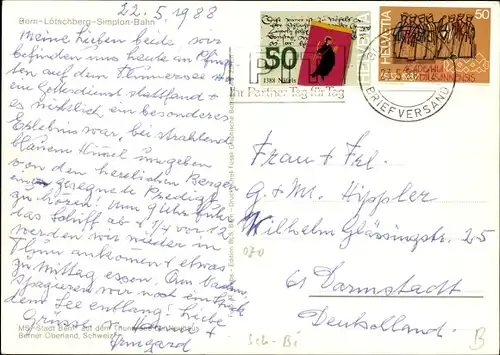 22.5.1988
Bern-Lötschberg-Simplon-Bahn
Meine Lieben beide wir
befinden uns heute an Pfings
ten auf dem Thunersee wo
ein Gottesdienst stattfand +
es wirklich ein besonderes
Erlebnis war, bei strahlend
blauem Himmel umgeben
von den herrlichen Bergen
eine gesegnete Predigt
zu hören! Um 9 Uhr fuhr
das Schiff ab + 1/4 vor 12
werden wir wieder in
Thun ankommen + etwas
zu Mittag essen. Am baden
spazieren wir noch ein Stück
dem See entlang! Liebe
Grüsse
Irmgard
MS «Stadt Bern» auf dem Thunersee
Berner Oberland, Schweiz
50
1388 Näfels
HELVETIA
HELVETIA
50
Ihr Partner Tag für Tag
BRIEFVERSAND
Frau + Frl.
G. + M. Hippler
Wilhelm Glässingstr. 25
61 Darmstadt
Deutschland.
070
Sch-Bi
B